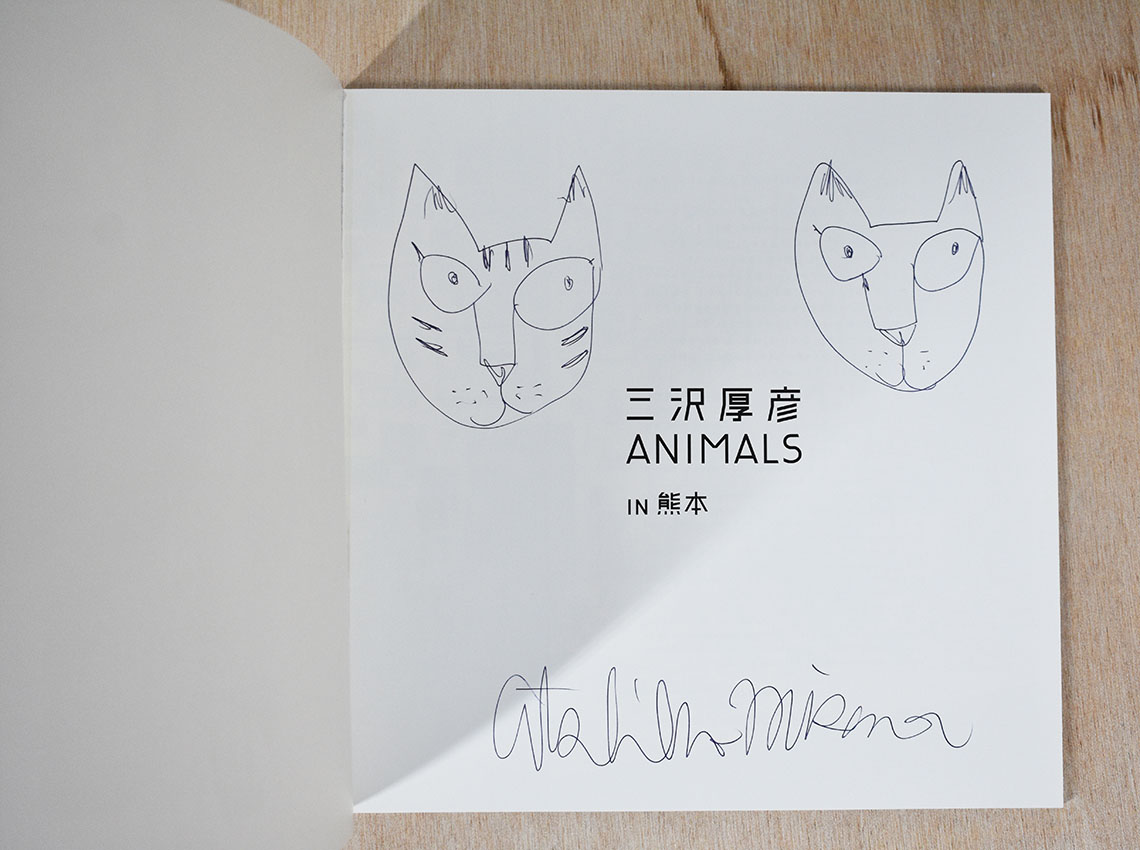 三沢厚彦
ANIMALS
IN 熊本
Atsuhiko Misawa